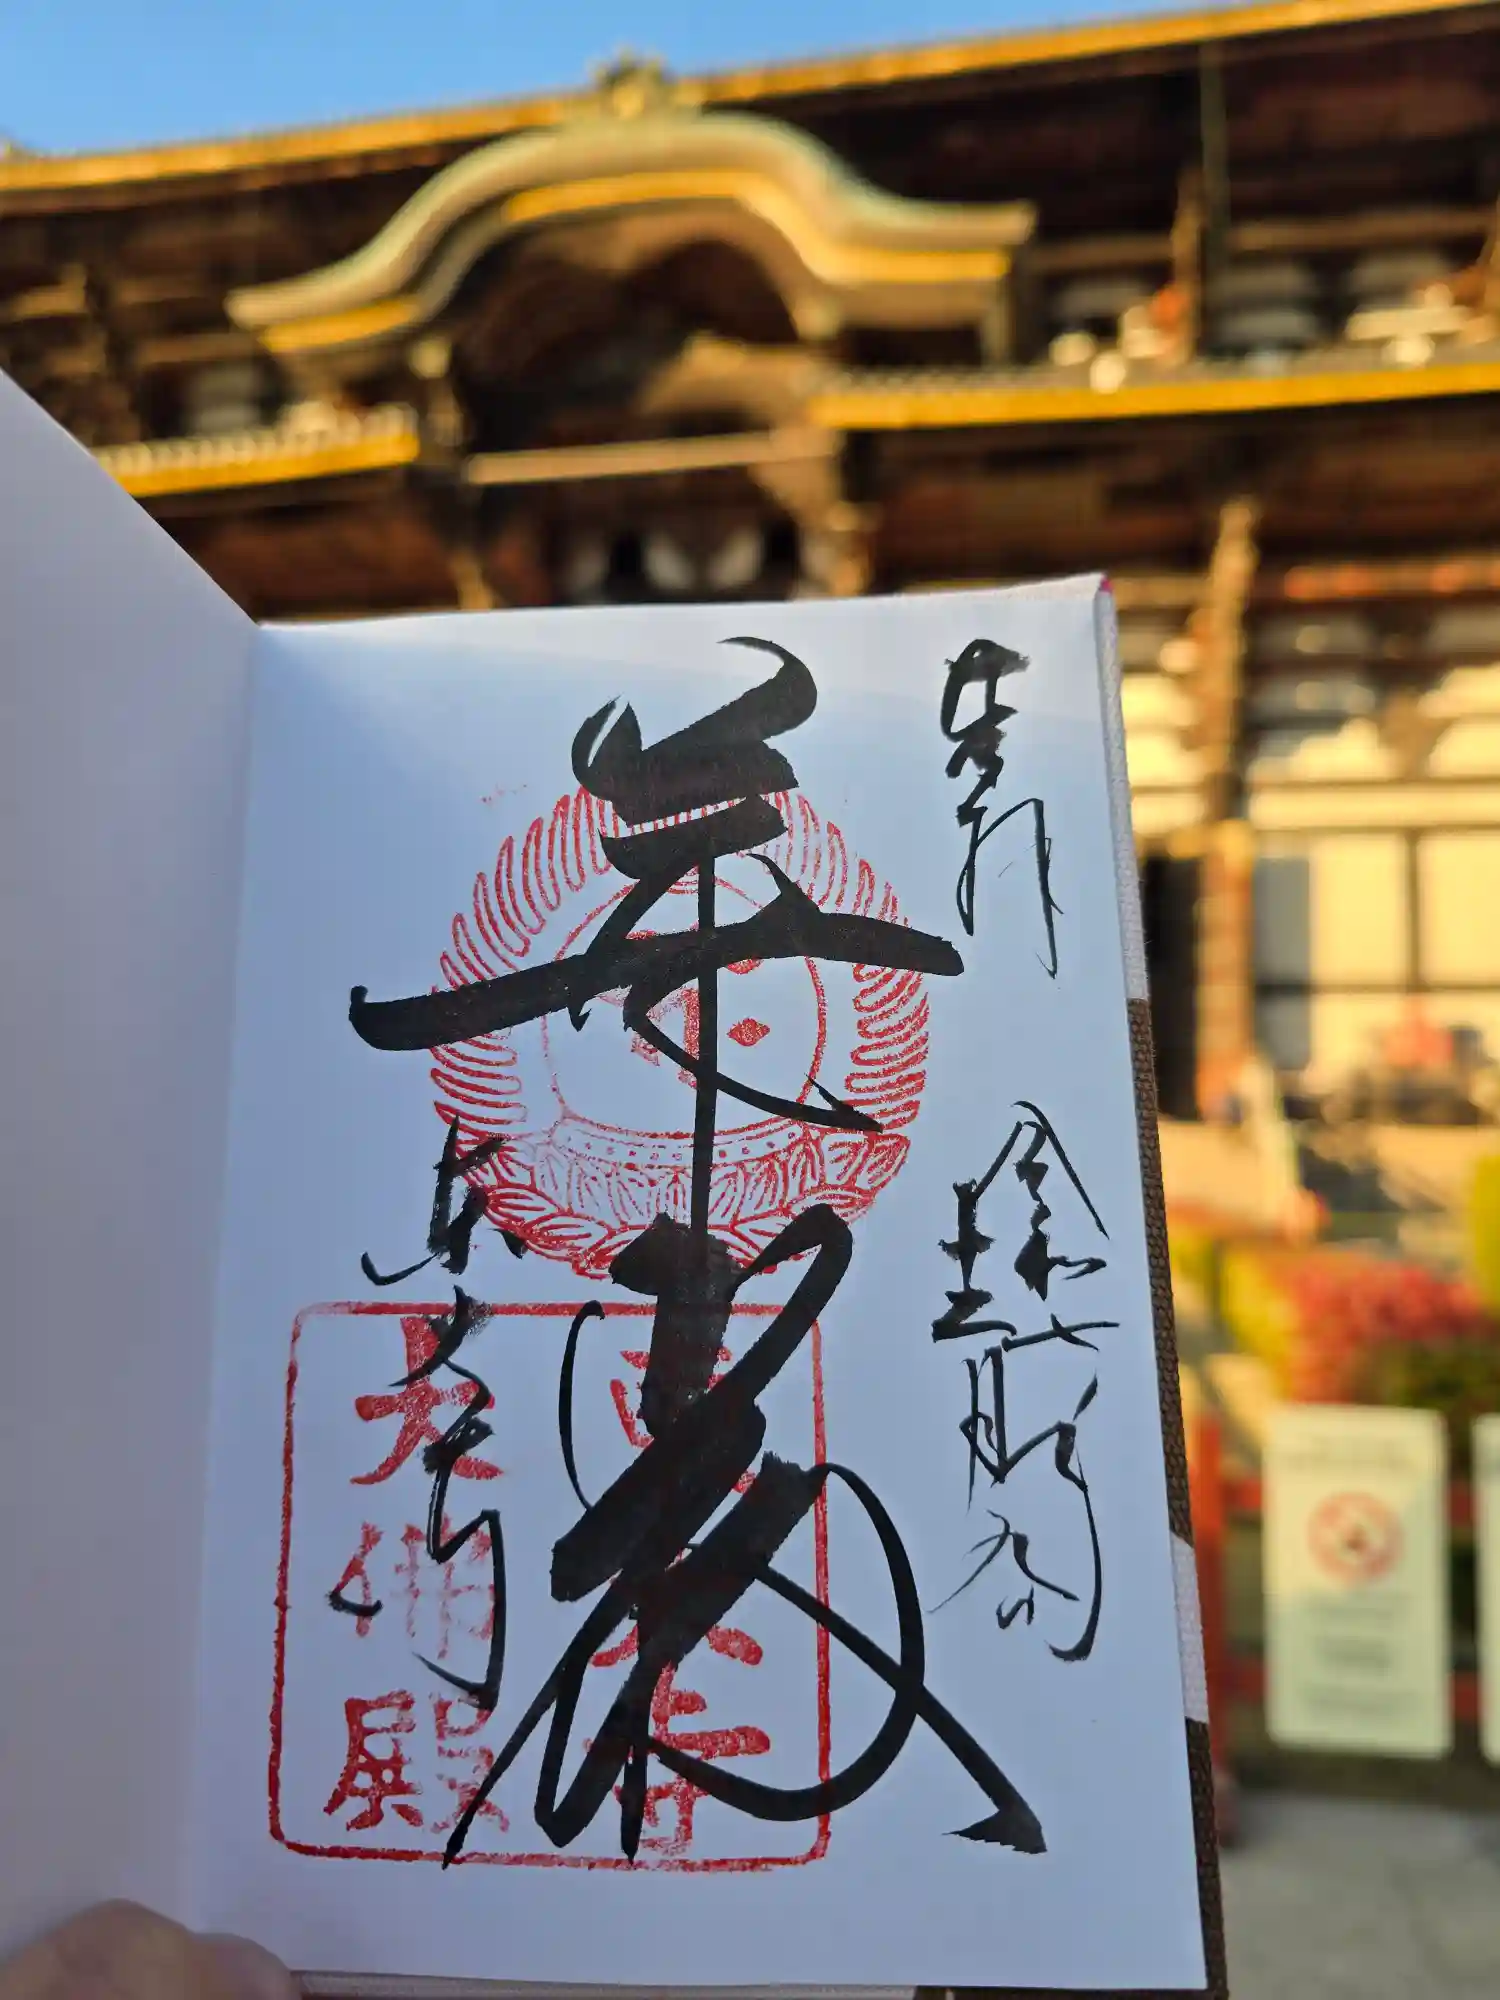 奉拝
令和七年
十二月九日
華厳
東大寺
東大寺
大佛殿